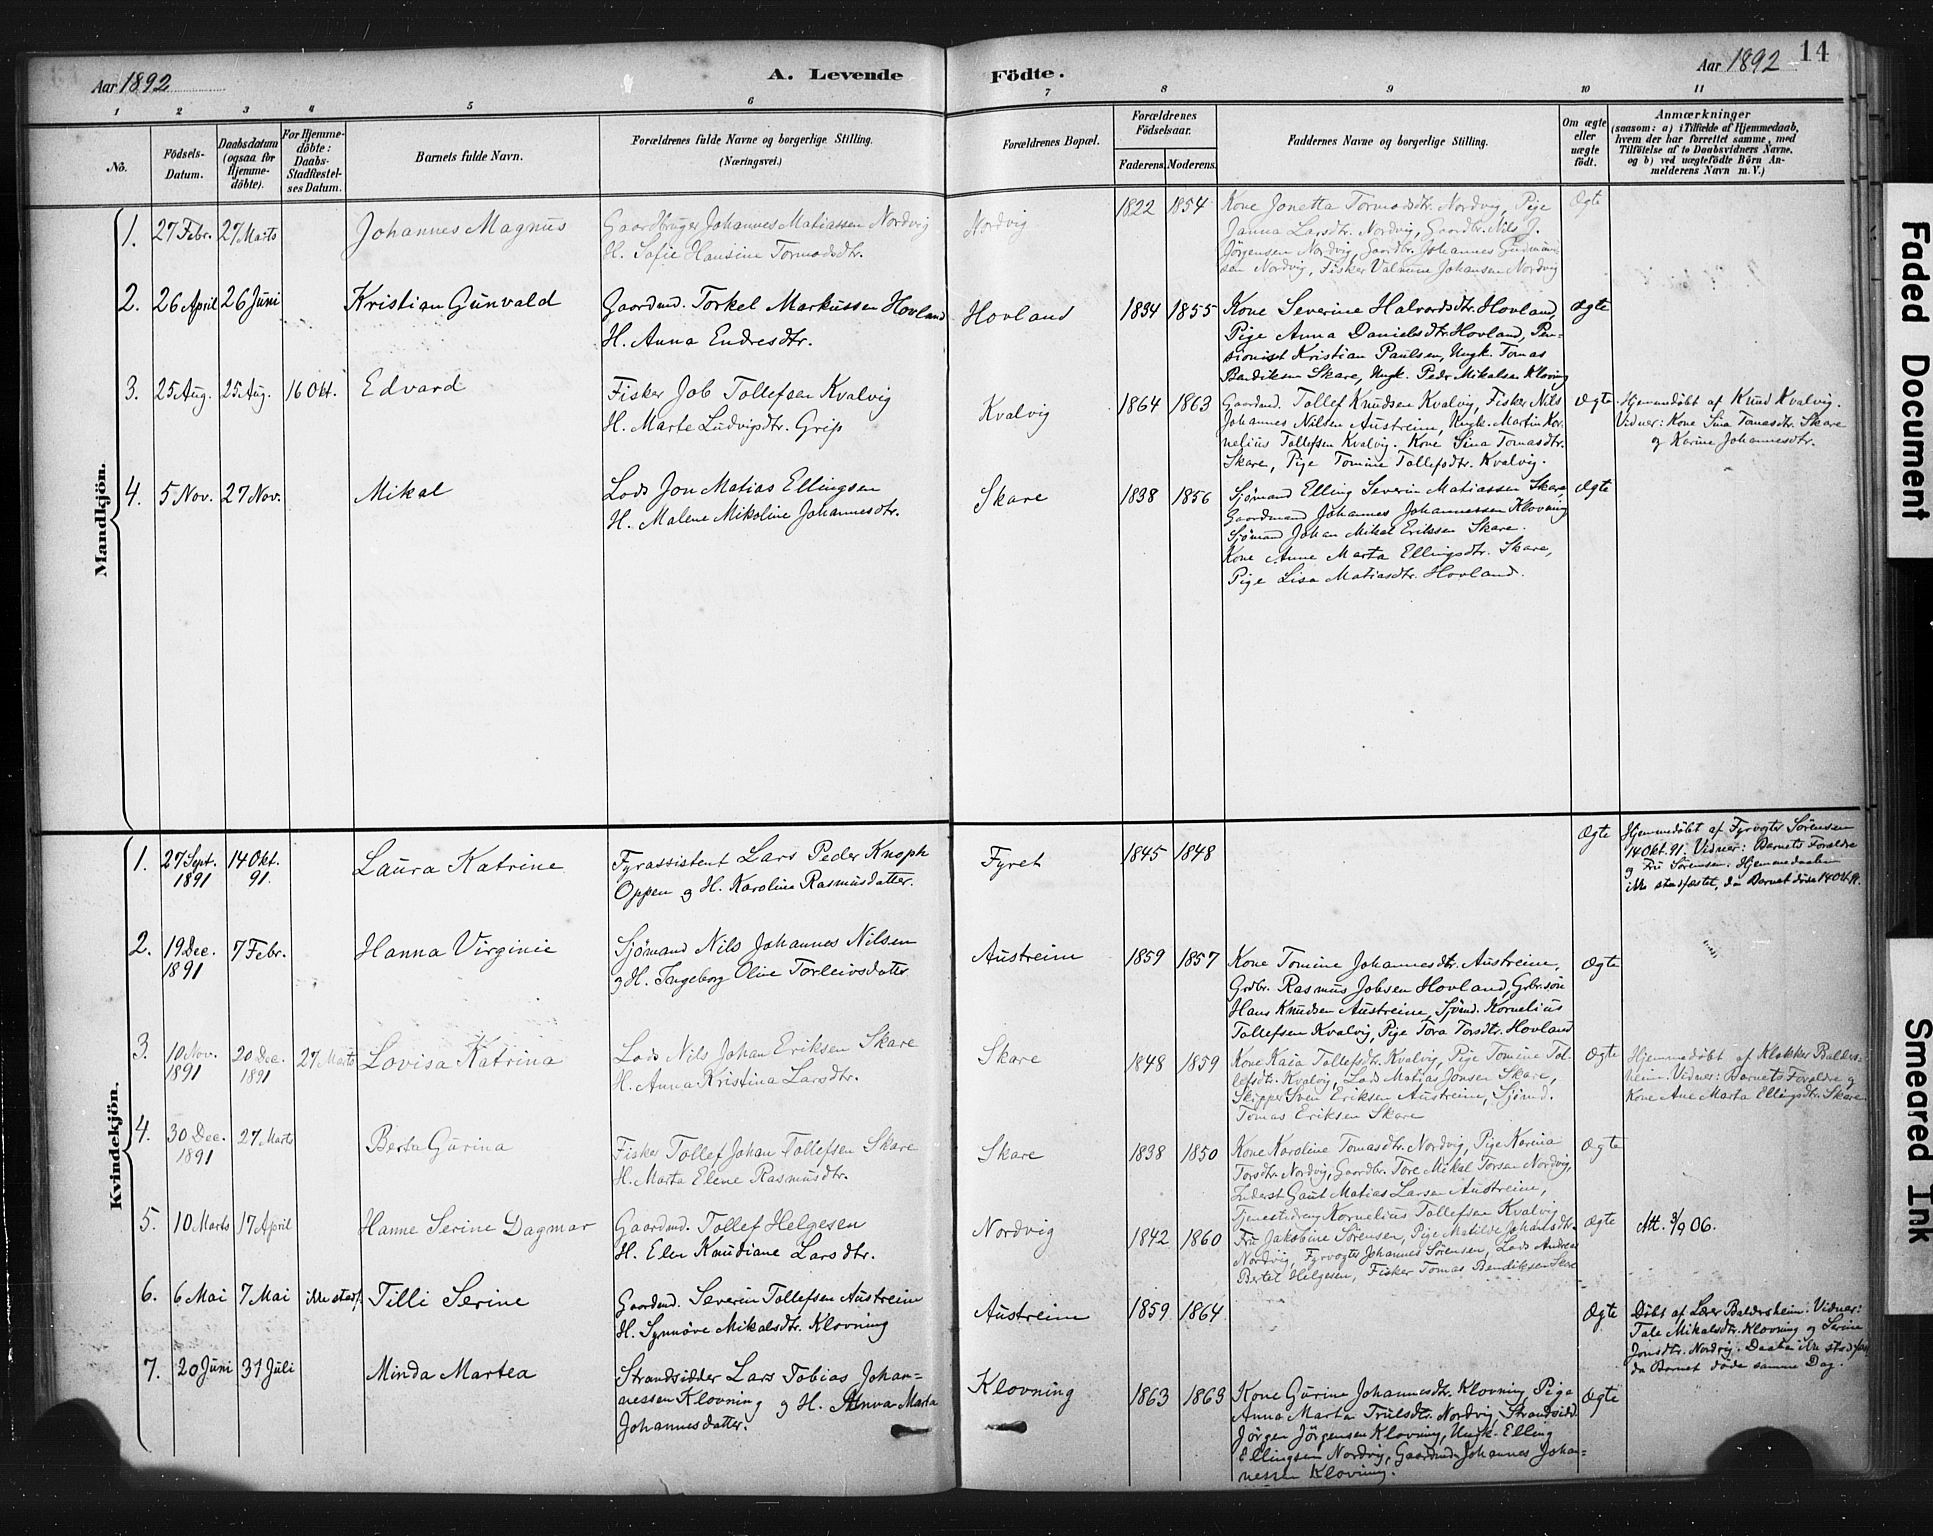 Aar 1892
A. Levende
Födte.
Aar 1892
14
1 2 3 4 5 6 7 8 9 10 11
No.
Födsels-Datum.
Daabsdatum (ogsaa for Hjemme-döbte).
For Hjemme-döbte: Daabs-Stadfæstel-ses Datum.
Barnets fulde Navn.
Forældrenes fulde Navne og borgerlige Stilling. (Næringsvei.)
Forældrenes Bopæl.
Forældrenes Födselsaar.
Faderens. Moderens.
Faddernes Navne og borgerlige Stilling.
Om ægte eller uægte födt.
Anmærkninger
(saasom: a) i Tilfælde af Hjemmedaab,
hvem der har forrettet samme, med
Tilföielse af to Daabsvidners Navne,
og b) ved uægtefödte Börn An-
melderens Navn m. V.)
Mandkjön.
1. 27 Febr. 27 Marts
Johannes Magnus
Gaardbruger Johannes Matiassen Nordvig
H. Sofie Hansine Tormodsdtr.
Nordvig
1822 1854
Kone Jonetta Tormodsdtr. Nordvig, Pige
Janna Larsdtr. Nordvig, Gaardbr. Nils J.
Jørgensen Nordvig, Gaardbr. Johannes Gudmund-
sen Nordvig, Fisker Valentine Johansen Nordvig
Ægte
2. 26 April 26 Juni
Kristian Gunvald
Gaardmd. Torkel Markussen Hovland
H. Anna Endresdtr.
Hovland
1834 1855
Kone Severine Halvordsdtr. Hovland,
Pige Anna Danielsdtr Hovland, Pen-
sionist Kristian Paulsen, Ungk. Tomas
Bendiksen Skare, Ungk. Peder Mikalsen Klovning
Ægte
3. 25 Aug. 25 Aug. 16 Okt.
Edvard
Fisker Job Tollefsen Kvalvig
H. Marte Ludvigsdtr. Grip
Kvalvig
1864 1863
Gaardmd. Tollef Knudsen Kvalvig, Fisker Nils
Johannes Nilsen Austreim, Ungk. Martin Kor-
nelius Tollefsen Kvalvig. Kone Sina Tomasdtr.
Skare, Pige Tomine Tollefsdtr. Kvalvig.
Ægte
Hjemmedøbt af Knud Kvalvig.
Vidner: Kone Sina Tomasdtr. Skare
og Karine Johannesdtr.
4. 5 Nov. 27 Nov.
Mikal
Lods Jon Matias Ellingsen
H. Malene Mikoline Johannesdtr.
Skare
1838 1856
Sjömand Elling Severin Matiassen Skare,
Gaardmand Johannes Johannessen Klovning
Sjömand Johan Mikal Eriksen Skare.
Kone Anne Marta Ellingsdtr. Skare,
Pige Lisa Matiasdtr. Hovland.
Ægte
Kvindekjön.
1. 27 Sept. 1891 14 Okt. 91.
Laura Katrine
Fyrassistent Lars Peder Knoph
Oppen og H. Karoline Rasmusdatter.
Fyret
1845 1848
Ægte
Hjemmedöbt af Fyrvogter Sörensen
14 Okt. 91. Vidner: Barnets Forældre
og Fru Sörensen. Hjemmedaaben
ikke stadfæstet, da Barnet döde 14 Okt. 91.
2. 19 Dec. 1891 7 Febr.
Hanna Virginie
Sjömand Nils Johannes Nilsen
og H. Ingeborg Oline Torleivsdatter
Austreim
1859 1857
Kone Tomine Johannesdtr. Austreim,
Grdbr. Rasmus Jobsen Hovland, Grbr.sön
Hans Knudsen Austreim, Sjömd. Kornelius
Tollefsen Kvalvig, Pige Tora Torsdtr. Hovland
Ægte
3. 10 Nov. 1891 20 Dec. 1891 27 Marts
Lovisa Katrina
Lods Nils Johan Eriksen Skare
H. Anna Kristina Larsdtr.
Skare
1848 1859
Kone Kaia Tollefsdtr. Kvalvig, Pige Tomine Tol-
lefsdtr. Kvalvig, Lods Matias Jonsen Skare,
Skipper Sven Eriksen Austreim, Sjömd.
Tomas Eriksen Skare
Ægte
Hjemmedöbt af Klokker Balders-
heim. Vidner: Barnets Forældre og
Kone Ane Marta Ellingsdtr. Skare
4. 30 Dec. 1891 27 Marts
Berta Gurina
Fisker Tollef Johan Tollefsen Skare
H. Marta Elene Rasmusdtr.
Skare
1838 1850
Kone Karoline Tomasdtr. Nordvig, Pige Karina
Torsdtr. Nordvig, Gaardbr. Tore Mikal Torsen Nordvig,
Inderst Gaut Matias Larsen Austreim,
Tjenestedreng Kornelius Tollefsen Kvalvig
Ægte
5. 10 Marts 17 April
Hanne Serine Dagmar
Gaardmd. Tollef Helgesen
H. Elen Knudiane Larsdtr.
Nordvig
1842 1860
Fru Jakobine Sörensen, Pige Matilde Johannesdtr.
Nordvig, Fyrvogter Johannes Sörensen, Lods Andreas
Bertel Helgesen, Fisker Tomas Bendiksen Skare
Ægte
Att. 3/9 06.
6. 6 Mai 7 Mai ikke stadf.
Tilli Serine
Gaardmd. Severin Tollefsen Austreim
H. Synnöve Mikalsdtr. Klovning
Austreim
1859 1864
Ægte
Döbt af Lærer Baldersheim. Vidner:
Tale Mikalsdtr. Klovning og Serine
Jonsdtr. Nordvig. Daaben ikke stadfæst
da Barnet döde samme Dag.
7. 20 Juni 31 Juli
Minda Martea
Strandsidder Lars Tobias Johan-
nessen Klovning og H. Anna Marta
Johannesdatter.
Klovning
1863 1863
Kone Gurine Johannesdtr. Klovning, Pige
Anna Marta Trulsdtr. Nordvig, Strandsidd.
Jörgen Jörgensen Klovning, Ungk. Elling
Ellingsen Nordvig, Gaardmd. Johannes Johan-
nessen Klovning.
Ægte
Faded Document
Smeared Ink